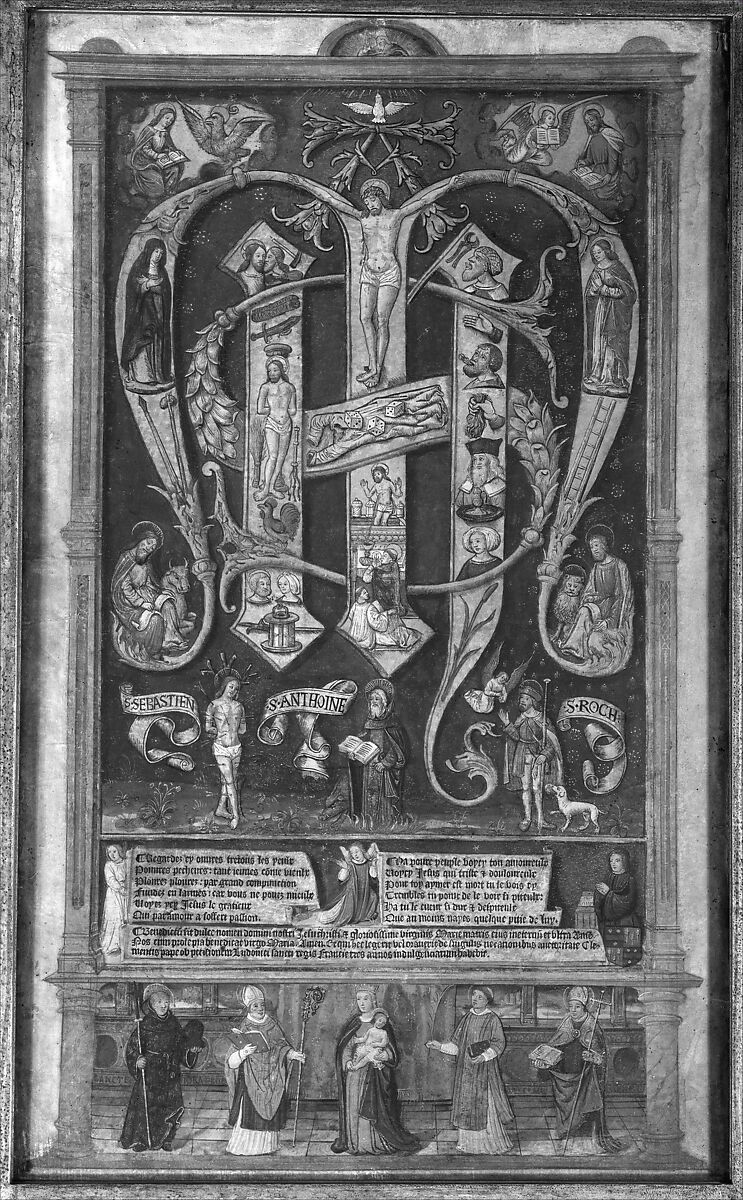 S·SEBASTIEN
·S·ANTHOINE
·S·ROCH·
Regardez cy ouvres trestous les yeulx
Pouures pecheurs: tant ieunes côme vieulx
Plourez ploures: par grand compunction
Fundez en larmes: car vous ne pouez mieulx
Voyez ycy Jesus le gracieux
Qui par amour a souffert passion.
Ha poure peuple voyez ton amoureulx
Voyez Jesus qui triste & douloureulx
Pour toy aymer est mort en le bois cy
Trembles en pointe de le voir si piteulx:
As tu le cueur si dur &
Que au moins nayes quelque pitie de luy.
Benedictū sit dulce nomen domini nostri Jesu christi & gloriosissime virginis Marie matris eius in eternū & vltra Amē
Nos cum prole pia benedicat virgo Maria. Amen.
mentis pape ob petitionem Ludouici sancti regis Francie tres annos indulgēciarum habebit.
SANCT